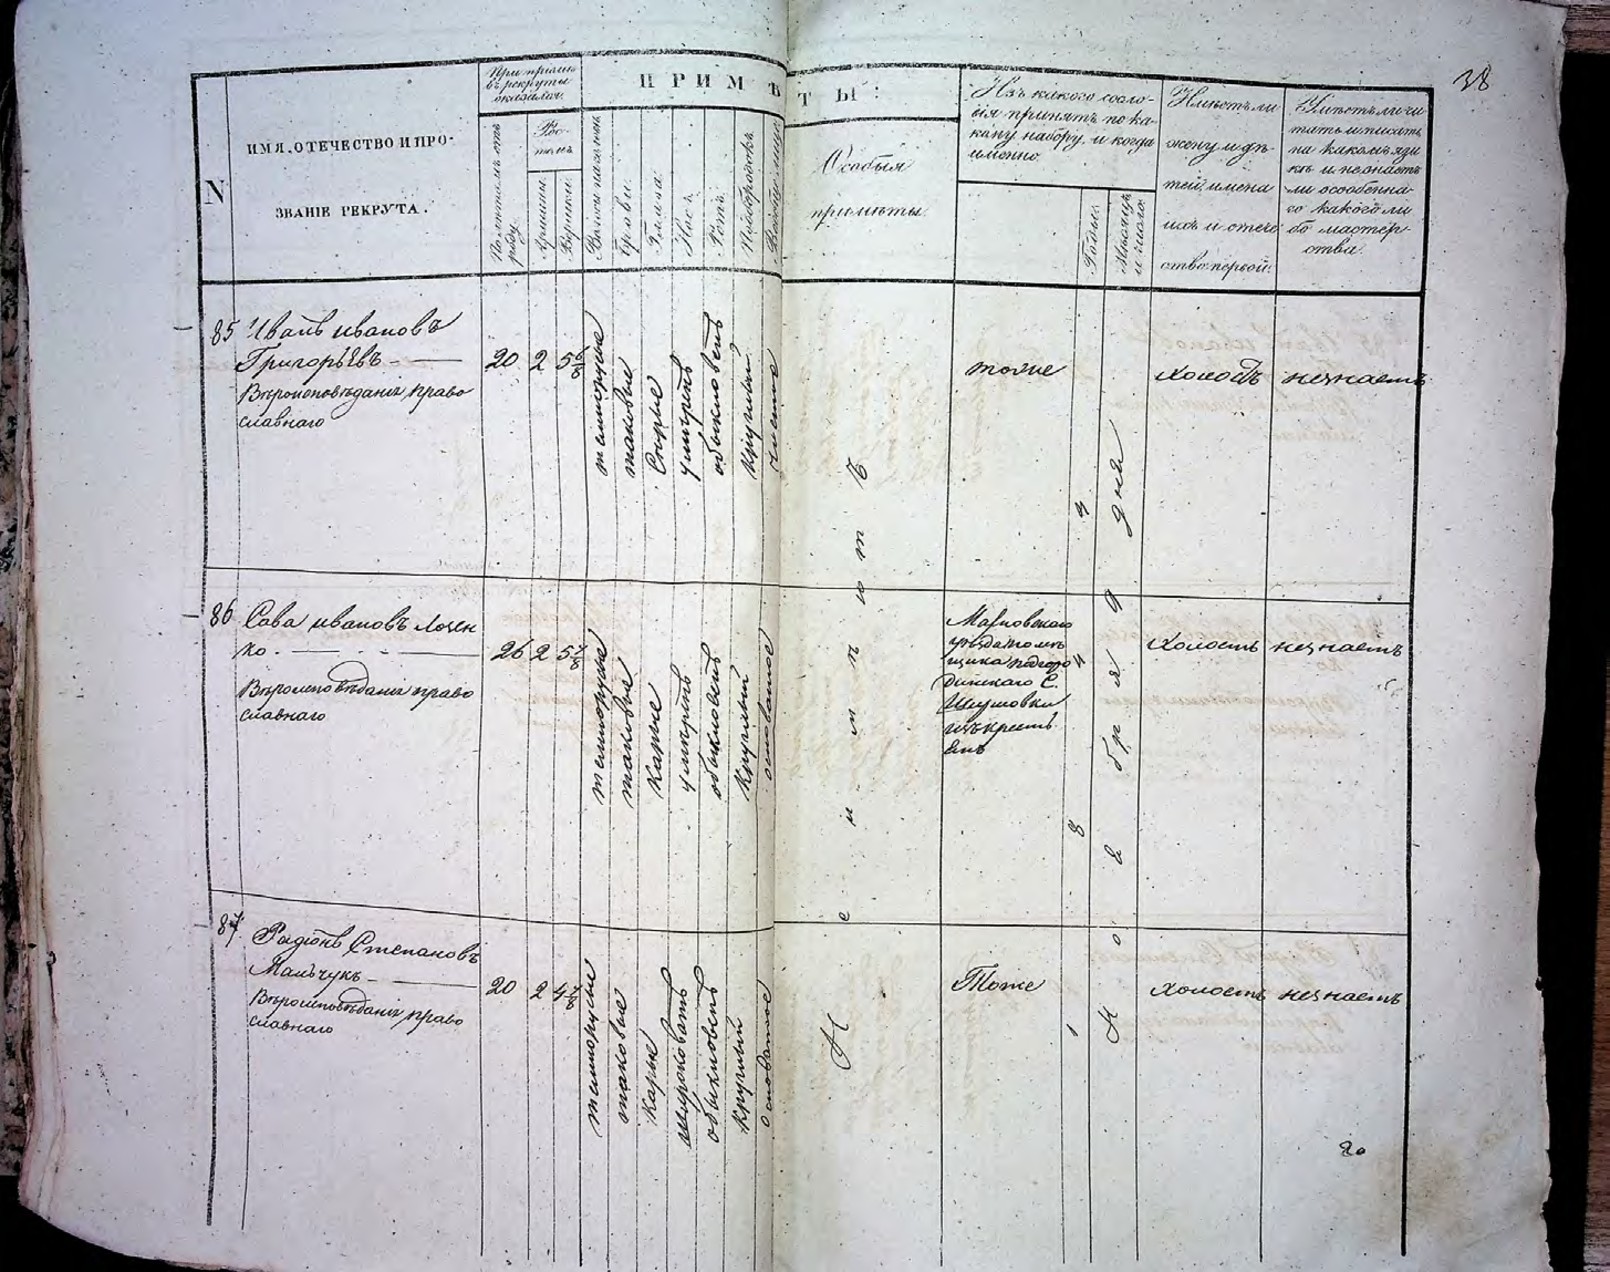 38
N
ИМЯ, ОТЕЧЕСТВО И ПРО-
ЗВАНІЕ РЕКРУТА.
При пріемѣ
въ рекруты
оказался.
По лѣтамъ отъ
роду.
Рос-
томъ
Аршины
Вершки
ПРИМѢТЫ:
Волосы на головѣ
Брови.
Глаза.
Носъ.
Ротъ.
Подбородокъ.
Особыя
примѣты.
Изъ какого сосло-
вія принятъ по ка-
кому набору, и когда
именно
Годы
Мѣсяцъ
и число.
Имѣетъ ли
жену и дѣ-
тей, имена
ихъ и отече
ство первой.
Умѣетъ ли чи
тать и писать
на какомъ язы
кѣ и не знаетъ
ли особенна-
го какого ли
бо мастер-
ства.
85 Иванъ Ивановъ
Григорьевъ
Вѣроисповѣданія право
славнаго
20 2 5 6/8
темнорусые
таковые
Сѣрые
умѣренъ
обыкновенъ
Круглый
чистое
тоже
холостъ
незнаетъ
86 Сава Ивановъ Лочен
ко.
Вѣроисповѣданія право
славнаго
26 2 5 7/8
темнорусые
таковые
Карые
умѣренъ
обыкновенъ
Круглый
осповатое
уѣзда помѣ
щика
динскаго С.
изъ кресть
янъ
холостъ
незнаетъ
87 Радіонъ Степановъ
Мальчукъ
Вѣроисповѣданія право
славнаго
20 2 4 7/8
темнорусые
таковые
Карые
широковатъ
обыкновенъ
Круглый
осповатое
Тоже
холостъ
незнаетъ
Неимѣютъ
1844
Ноября 9 дня